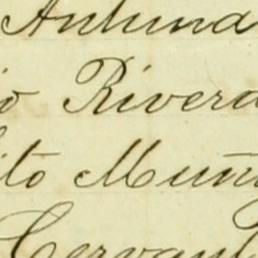 Antuna
io Rivera
ito Muñi
Cervant